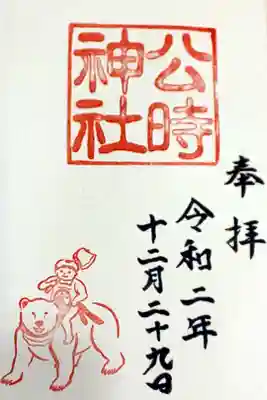 奉拝
公時
神社
令和二年
十二月二十九日